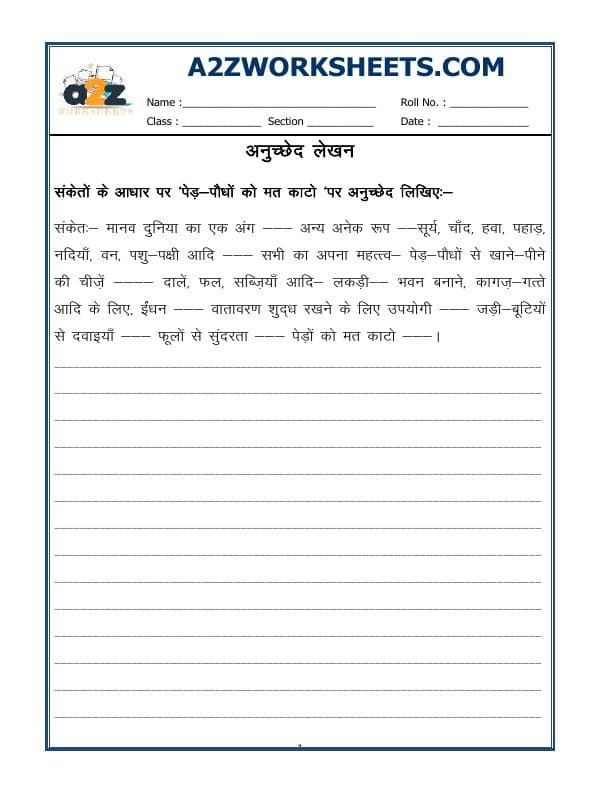 a2z
WORKSHEETS
A2ZWORKSHEETS.COM
Name :____________________________ Roll No. : ____________
Class : _____________ Section ___________ Date : ______________
अनुच्छेद लेखन
संकेतों के आधार पर 'पेड़–पौधों को मत काटो 'पर अनुच्छेद लिखिएः–
संकेतः– मानव दुनिया का एक अंग ––– अन्य अनेक रूप ––सूर्य, चाँद, हवा, पहाड़,
नदियाँ, वन, पशु–पक्षी आदि ––– सभी का अपना महत्त्व– पेड़–पौधों से खाने–पीने
की चीज़ें –––– दालें, फल, सब्ज़ियाँ आदि– लकड़ी–– भवन बनाने, कागज़–गत्ते
आदि के लिए, ईंधन ––– वातावरण शुद्ध रखने के लिए उपयोगी ––– जड़ी–बूटियों
से दवाइयाँ ––– फूलों से सुंदरता ––– पेड़ों को मत काटो –––।